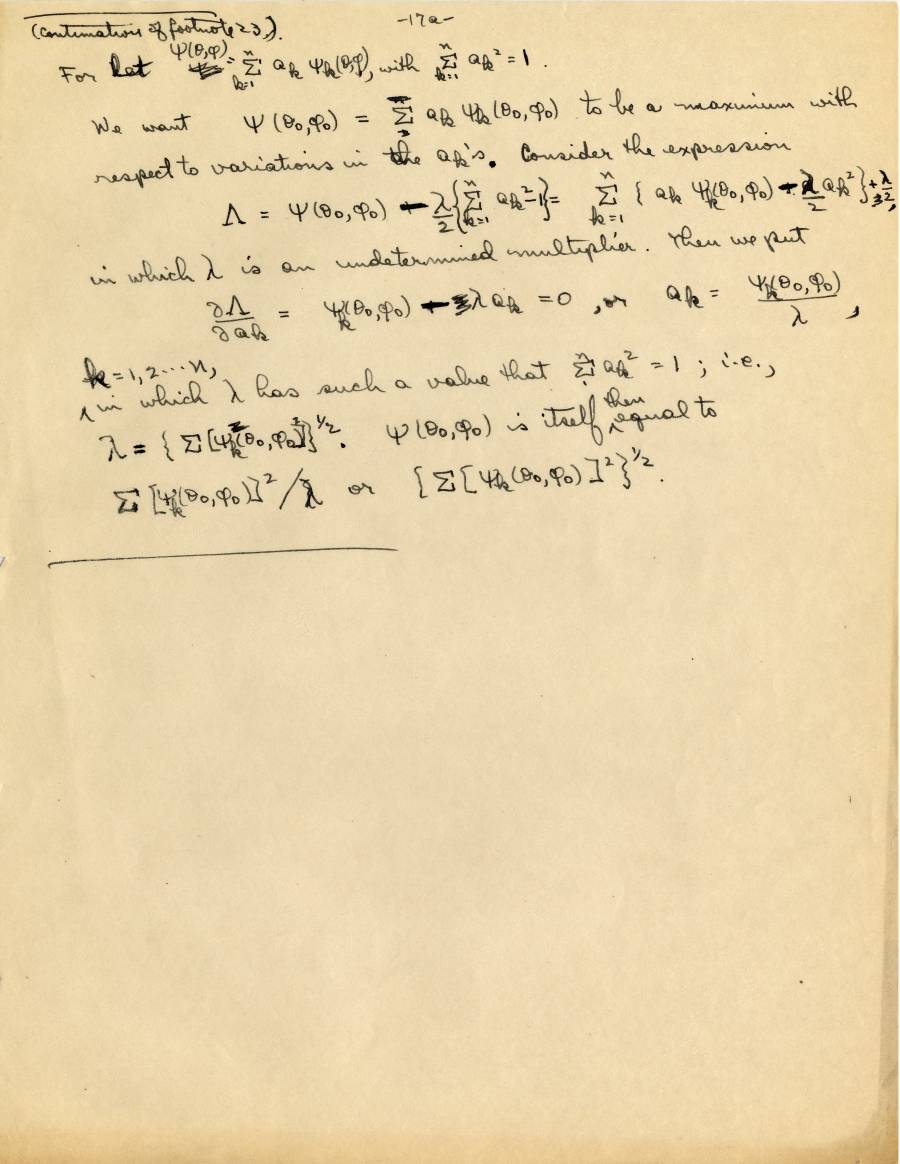 -17a-
(Continuation of footnote 23).
For let Ψ(θ,φ) = Σ_{k=1}^{n} a_k Ψ_k(θ,φ), with Σ_{k=1}^{n} a_k² = 1.
We want Ψ(θ₀,φ₀) = Σ a_k Ψ_k(θ₀,φ₀) to be a maximum with
respect to variations in the a_k's. Consider the expression
Λ = Ψ(θ₀,φ₀) - λ/2 {Σ_{k=1}^{n} a_k² - 1} = Σ_{k=1}^{n} { a_k Ψ_k(θ₀,φ₀) - λ/2 a_k² } + λ/2,
in which λ is an undetermined multiplier. Then we put
∂Λ/∂a_k = Ψ_k(θ₀,φ₀) - λ a_k = 0, or a_k = Ψ_k(θ₀,φ₀)/λ,
k = 1, 2 ··· n,
in which λ has such a value that Σ^{n} a_k² = 1; i.e.,
λ = { Σ [Ψ_k(θ₀,φ₀)]² }^{1/2}. Ψ(θ₀,φ₀) is itself then equal to
Σ [Ψ_k(θ₀,φ₀)]² / λ or { Σ [Ψ_k(θ₀,φ₀)]² }^{1/2}.